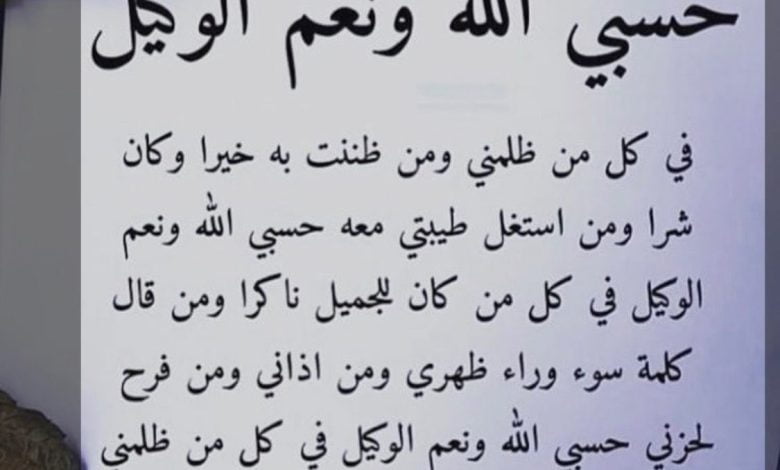 حسبي الله ونعم الوكيل
في كل من ظلمني ومن ظننت به خيرا وكان
شرا ومن استغل طيبتي معه حسبي الله ونعم
الوكيل في كل من كان للجميل ناكرا ومن قال
كلمة سوء وراء ظهري ومن اذاني ومن فرح
لحزني حسبي الله ونعم الوكيل في كل من ظلمني